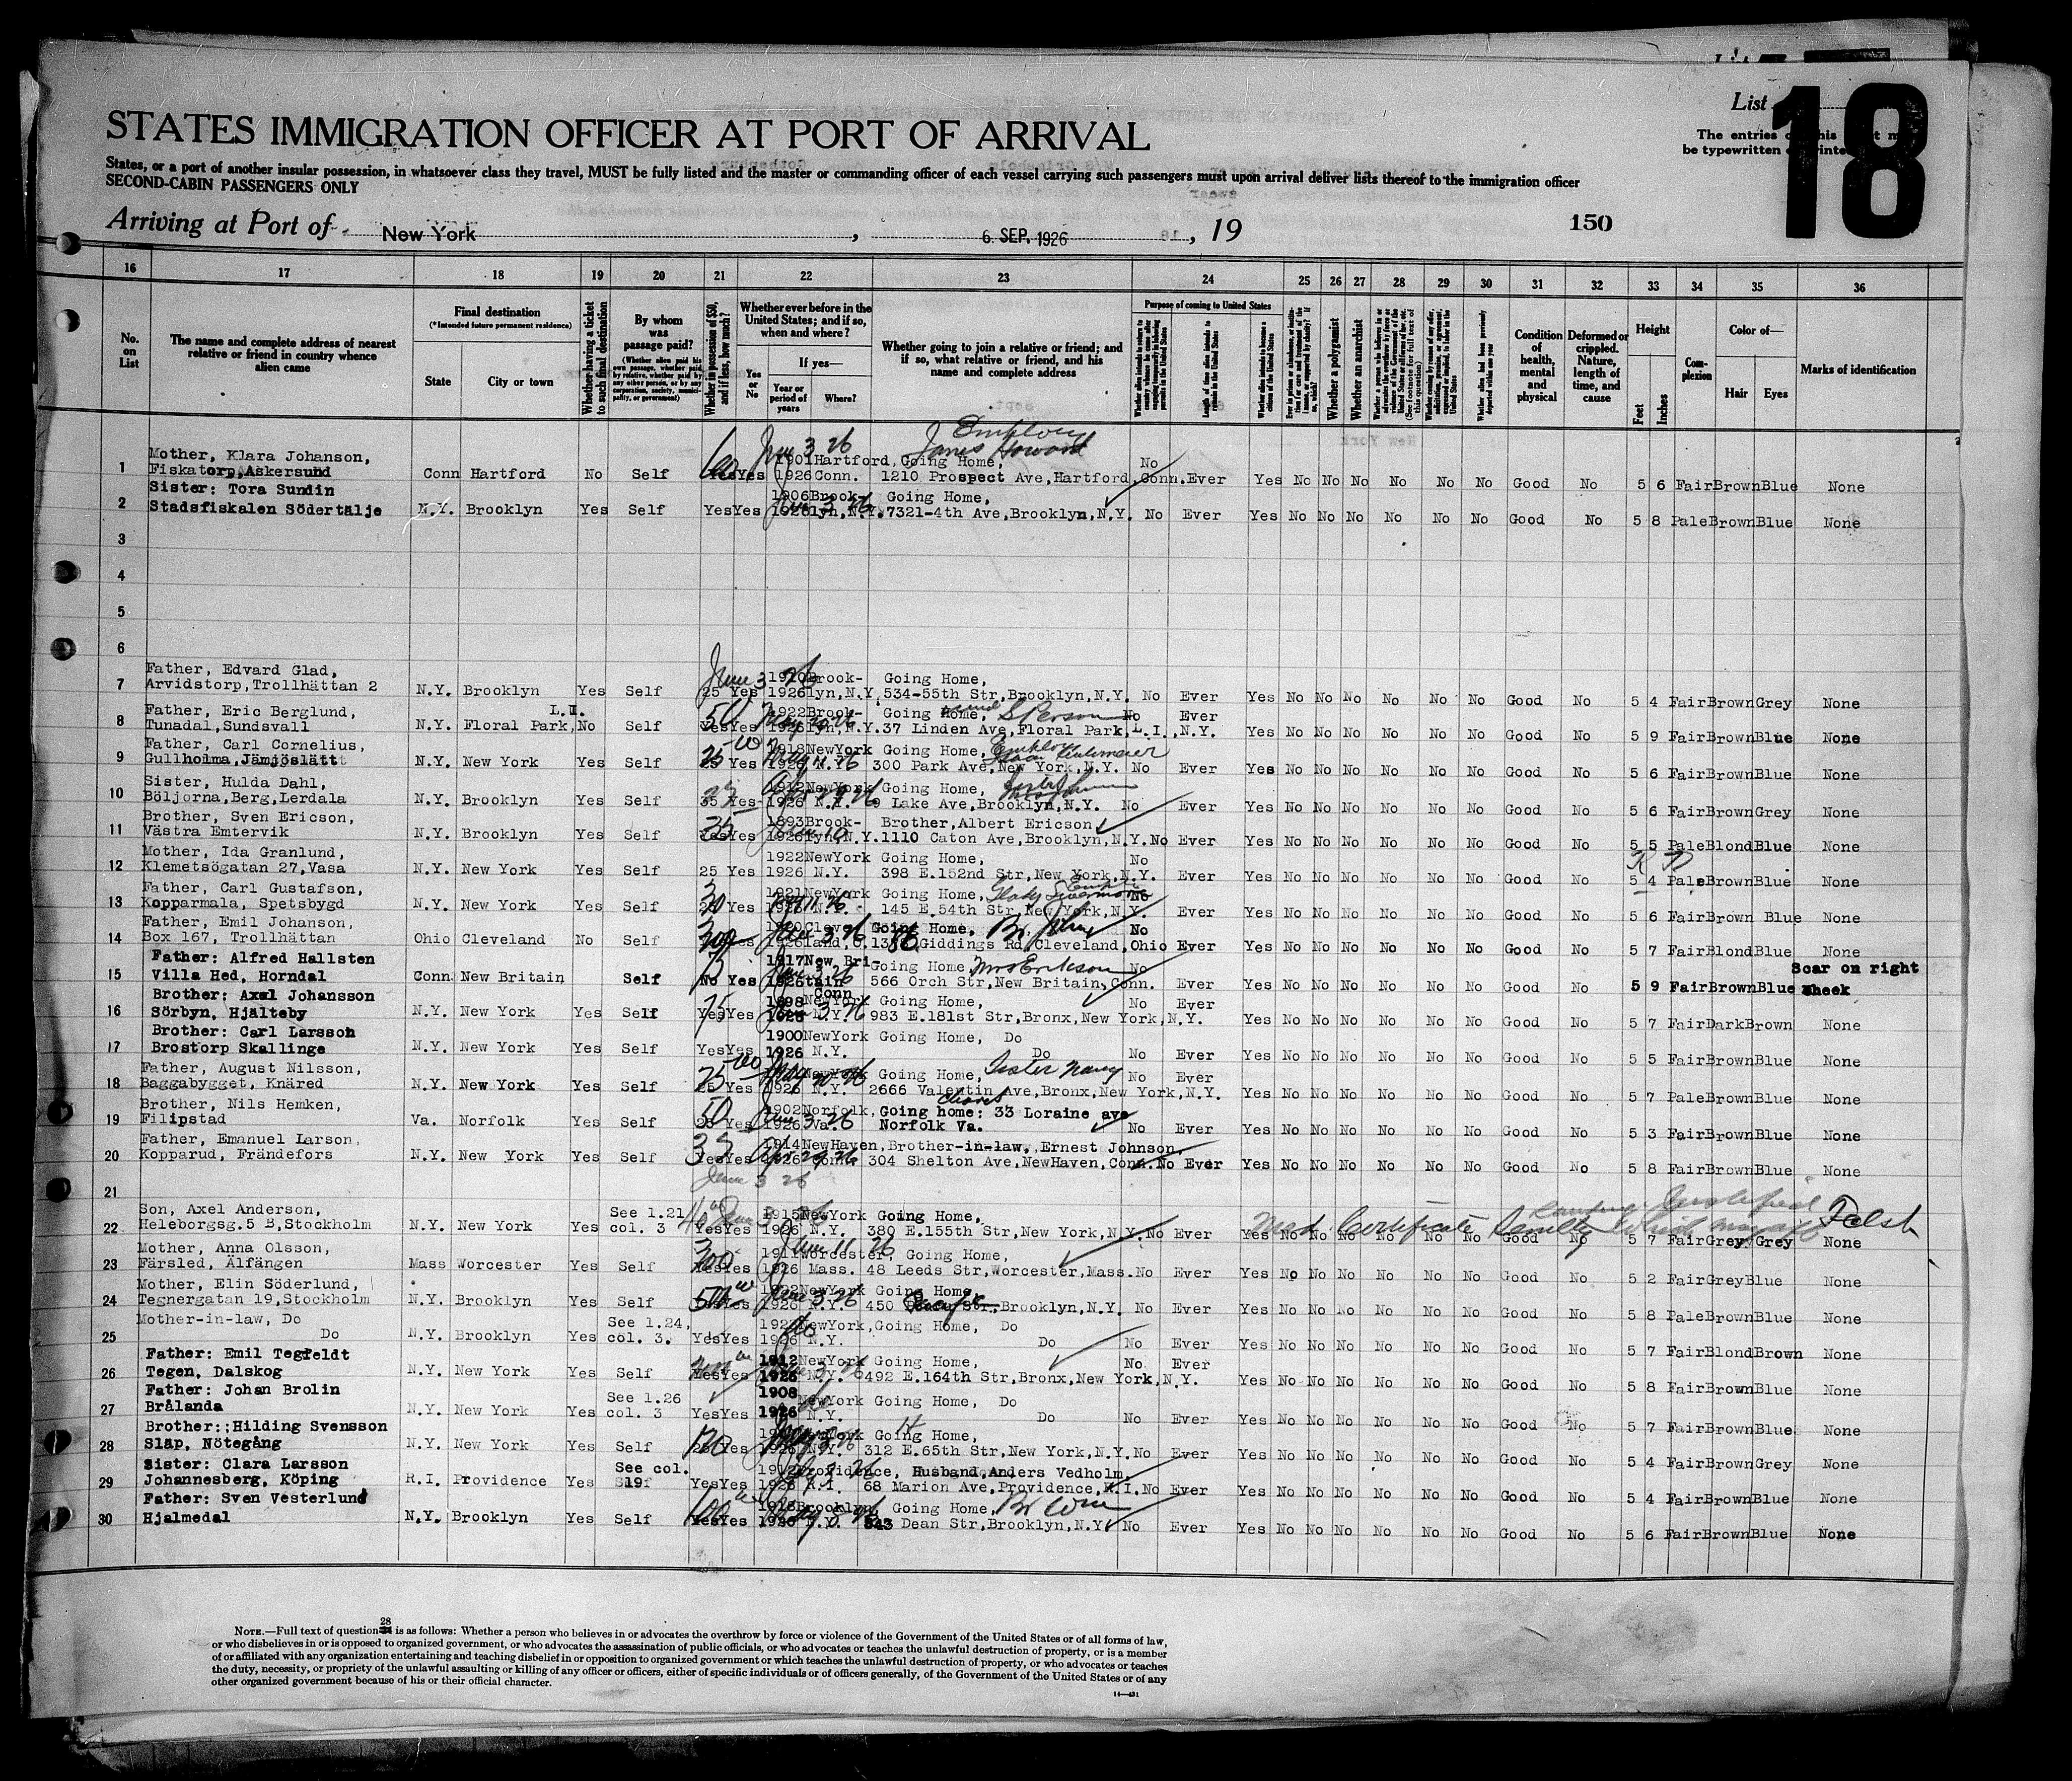 List 18
STATES IMMIGRATION OFFICER AT PORT OF ARRIVAL
The entries
be typewritten
States, or a port of another insular possession, in whatsoever class they travel, MUST be fully listed and the master or commanding officer of each vessel carrying such passengers must upon arrival deliver lists thereof to the immigration officer
SECOND-CABIN PASSENGERS ONLY
Arriving at Port of New York, 6 SEP. 1926, 19
150
16 17 18 19 20 21 22 23 24 25 26 27 28 29 30 31 32 33 34 35 36
No. on List
The name and complete address of nearest relative or friend in country whence alien came
Final destination
(*Intended future permanent residence)
State
City or town
Whether having a ticket to such final destination
By whom was passage paid?
(Whether alien paid his own passage, whether paid by relative, whether paid by any other person, or by any corporation, society, municipality, or government)
Whether in possession of $50, and if less, how much?
Whether ever before in the United States; and if so, when and where?
Yes or No
If yes—
Year or period of years
Where?
Whether going to join a relative or friend; and if so, what relative or friend, and his name and complete address
Purpose of coming to United States
Length of time alien intends to remain in the United States
Whether alien intends to become a citizen of the United States
Whether a polygamist
Whether an anarchist
Whether alien had been previously deported within one year
Condition of health, mental and physical
Deformed or crippled. Nature, length of time, and cause
Height
Feet
Inches
Complexion
Color of—
Hair
Eyes
Marks of identification
Employ
James Howard
Mother, Klara Johanson, 1901 Hartford, Going Home, No
1 Fiskatorp, Askersund Conn Hartford No Self Yes Yes 1926 Conn. 1210 Prospect Ave, Hartford, Conn. Ever Yes No No No No No No Good No 5 6 Fair Brown Blue None
Sister: Tora Sundin 1906 Brook- Going Home,
2 Stadsfiskalen Södertälje N.Y. Brooklyn Yes Self Yes Yes 1926 lyn, N.Y. 7321-4th Ave, Brooklyn, N.Y. No Ever Yes No No No No No No Good No 5 8 Pale Brown Blue None
3
4
5
6
June 3 26
Father, Edvard Glad, Brook- Going Home,
7 Arvidstorp, Trollhättan 2 N.Y. Brooklyn Yes Self 25 Yes 1926 lyn, N.Y. 534-55th Str, Brooklyn, N.Y. No Ever Yes No No No No No No Good No 5 4 Fair Brown Grey None
Father, Eric Berglund, L.I. 50 1922 Brook- Going Home, No Ever
8 Tunadal, Sundsvall N.Y. Floral Park, No Self Yes Yes 1926 lyn, N.Y. 37 Linden Ave, Floral Park, L.I., N.Y. Yes No No No No No No Good No 5 9 Fair Brown Blue None
Father, Carl Cornelius, New York Going Home, Employ
9 Gullholma, Jämjöslätt N.Y. New York Yes Self 25 Yes 1926 300 Park Ave, New York, N.Y. No Ever Yes No No No No No No Good No 5 6 Fair Brown Blue None
Sister, Hulda Dahl, 1912 New York Going Home,
10 Böljorna, Berg, Lerdala N.Y. Brooklyn Yes Self 35 Yes 1926 N.Y. Lake Ave, Brooklyn, N.Y. No Ever Yes No No No No No No Good No 5 6 Fair Brown Grey None
Brother, Sven Ericson, 1893 Brook- Brother, Albert Ericson
11 Västra Emtervik N.Y. Brooklyn Yes Self Yes Yes 1926 lyn, N.Y. 1110 Caton Ave, Brooklyn, N.Y. No Ever Yes No No No No No No Good No 5 5 Pale Blond Blue None
Mother, Ida Granlund, 1922 New York Going Home, No
12 Klemetsögatan 27, Vasa N.Y. New York Yes Self 25 Yes 1926 N.Y. 398 E. 152nd Str, New York, N.Y. Ever Yes No No No No No No Good No 5 4 Pale Brown Blue None
Father, Carl Gustafson, 1921 New York Going Home, No
13 Kopparmala, Spetsbygd N.Y. New York Yes Self Yes 1926 N.Y. 145 E. 54th Str, New York, N.Y. Ever Yes No No No No No No Good No 5 6 Fair Brown Blue None
Father, Emil Johanson, Going Home. No
14 Box 167, Trollhättan Ohio Cleveland No Self Yes 1926 land, O. Giddings Rd, Cleveland, Ohio Ever Yes No No No No No No Good No 5 7 Fair Blond Blue None
Father: Alfred Hallsten 75 1917 New Bri- Going Home, Mrs Erikson No Scar on right
15 Villa Hed, Horndal Conn New Britain Self No Yes 1926 tain Conn 566 Orch Str, New Britain, Conn. Ever Yes No No No No No No Good No 5 9 Fair Brown Blue cheek
Brother: Axel Johansson 75 1898 New York Going Home, No Ever
16 Sörbyn, Hjälteby N.Y. New York Yes Self Yes Yes N.Y. 983 E. 181st Str, Bronx, New York, N.Y. Yes No No No No No No Good No 5 7 Fair Dark Brown None
Brother: Carl Larsson 1900 New York Going Home, Do
17 Brostorp Skallinge N.Y. New York Yes Self Yes Yes 1926 N.Y. Do No Ever Yes No No No No No No Good No 5 5 Fair Brown Blue None
Father, August Nilsson, New York Going Home, Sister Nancy No Ever
18 Baggabygget, Knäred N.Y. New York Yes Self 25 Yes 1926 N.Y. 2666 Valentin Ave, Bronx, New York, N.Y. Yes No No No No No No Good No 5 7 Pale Brown Blue None
Brother, Nils Hemken, 50 1902 Norfolk, Going home: 33 Loraine ave
19 Filipstad Va. Norfolk Yes Self Yes 1926 Va. Norfolk Va. No Ever Yes No No No No No No Good No 5 3 Fair Brown Blue None
Father, Emanuel Larson, 35 1914 New Haven, Brother-in-law, Ernest Johnson,
20 Kopparud, Frändefors N.Y. New York Yes Self Yes Yes 1926 Conn. 304 Shelton Ave, New Haven, Conn. No Ever Yes No No No No No No Good No 5 8 Fair Brown Blue None
June 3 26
21
Son, Axel Anderson, See l.21 1915 New York Going Home,
22 Heleborgsg. 5 B, Stockholm N.Y. New York Yes col. 3 Yes 1926 N.Y. 380 E. 155th Str, New York, N.Y. No Ever Yes No No No No No No Good No 5 7 Fair Grey Grey None
Med Certificate Senility
Mother, Anna Olsson, 300 June 11 26 1911 Worcester, Going Home,
23 Färsled, Älfängen Mass Worcester Yes Self Yes Yes 1926 Mass. 48 Leeds Str, Worcester, Mass. No Ever Yes No No No No No No Good No 5 2 Fair Grey Blue None
Mother, Elin Söderlund, New York Going Home,
24 Tegnergatan 19, Stockholm N.Y. Brooklyn Yes Self Yes 1926 N.Y. 450 Pacific Str., Brooklyn, N.Y. No Ever Yes No No No No No No Good No 5 8 Pale Brown Blue None
Mother-in-law, Do See l.24, New York, Going Home, Do
25 Do N.Y. Brooklyn Yes col. 3. Yes Yes 1926 N.Y. Do No Ever Yes No No No No No No Good No 5 7 Fair Blond Brown None
Father: Emil Tegfeldt 1912 New York Going Home, No Ever
26 Tegen, Dalskog N.Y. New York Yes Self Yes Yes 1926 N.Y. 492 E. 164th Str, Bronx, New York, N.Y. Yes No No No No No No Good No 5 8 Fair Brown Blue None
Father: Johan Brolin See l.26 1908 New York Going Home, Do
27 Brålanda N.Y. New York Yes col. 3 Yes Yes 1926 N.Y. Do No Ever Yes No No No No No No Good No 5 7 Fair Brown Blue None
Brother:;Hilding Svensson Going Home,
28 Släp, Nötegång N.Y. New York Yes Self Yes 1926 N.Y. 312 E. 65th Str, New York, N.Y. No Ever Yes No No No No No No Good No 5 4 Fair Brown Grey None
Sister: Clara Larsson See col. Providence, Husband, Anders Vedholm.
29 Johannesberg, Köping R.I. Providence Yes 19 Yes Yes 1926 R.I. 68 Marion Ave, Providence, R.I. No Ever Yes No No No No No No Good No 5 4 Fair Brown Blue None
Father: Sven Vesterlund Brooklyn, Going Home,
30 Hjalmedal N.Y. Brooklyn Yes Self Yes Yes N.Y. 543 Dean Str, Brooklyn, N.Y. No Ever Yes No No No No No No Good No 5 6 Fair Brown Blue None
28
NOTE.—Full text of question is as follows: Whether a person who believes in or advocates the overthrow by force or violence of the Government of the United States or of all forms of law,
or who disbelieves in or is opposed to organized government, or who advocates the assassination of public officials, or who advocates or teaches the unlawful destruction of property, or is a member
of or affiliated with any organization entertaining and teaching disbelief in or opposition to organized government or which teaches the unlawful destruction of property, or who advocates or teaches
the duty, necessity, or propriety of the unlawful assaulting or killing of any officer or officers, either of specific individuals or of officers generally, of the Government of the United States or of any
other organized government because of his or their official character.
14—431